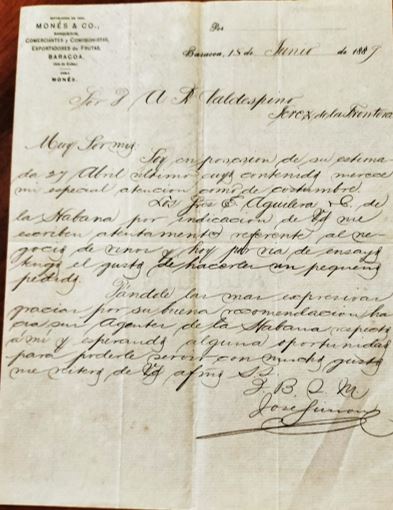 MONÉS & CO.,
BANQUEROS,
COMERCIANTES Y COMISIONISTAS,
EXPORTADORES DE FRUTAS,
BARACOA,
(Isla de Cuba.)
MONÉS.
Por
Baracoa, 18 de Junio de 1889
Sor D A R Valdespino
Jerez de la Frontera
Muy Sor mio
Soy en posesion de su estima-
da 27 Abril ultimo cuyo contenido merece
mi especial atencion como de costumbre.
Los Sres E. Aguilera & C. de
la Habana por indicacion de Vd me
escriben atentamente referente al ne-
gocio de vinos y hoy por via de ensayo
tengo el gusto de hacerles un pequeño
pedido.
Dándole las mas expresivas
gracias por su buena recomendacion ha-
cia sus Agentes de la Habana respecto
á mi y esperando alguna oportunidad
para poderle servir con mucho gusto
me reitero de Vd afmo S. S.
Q. B. S. M
José Simon